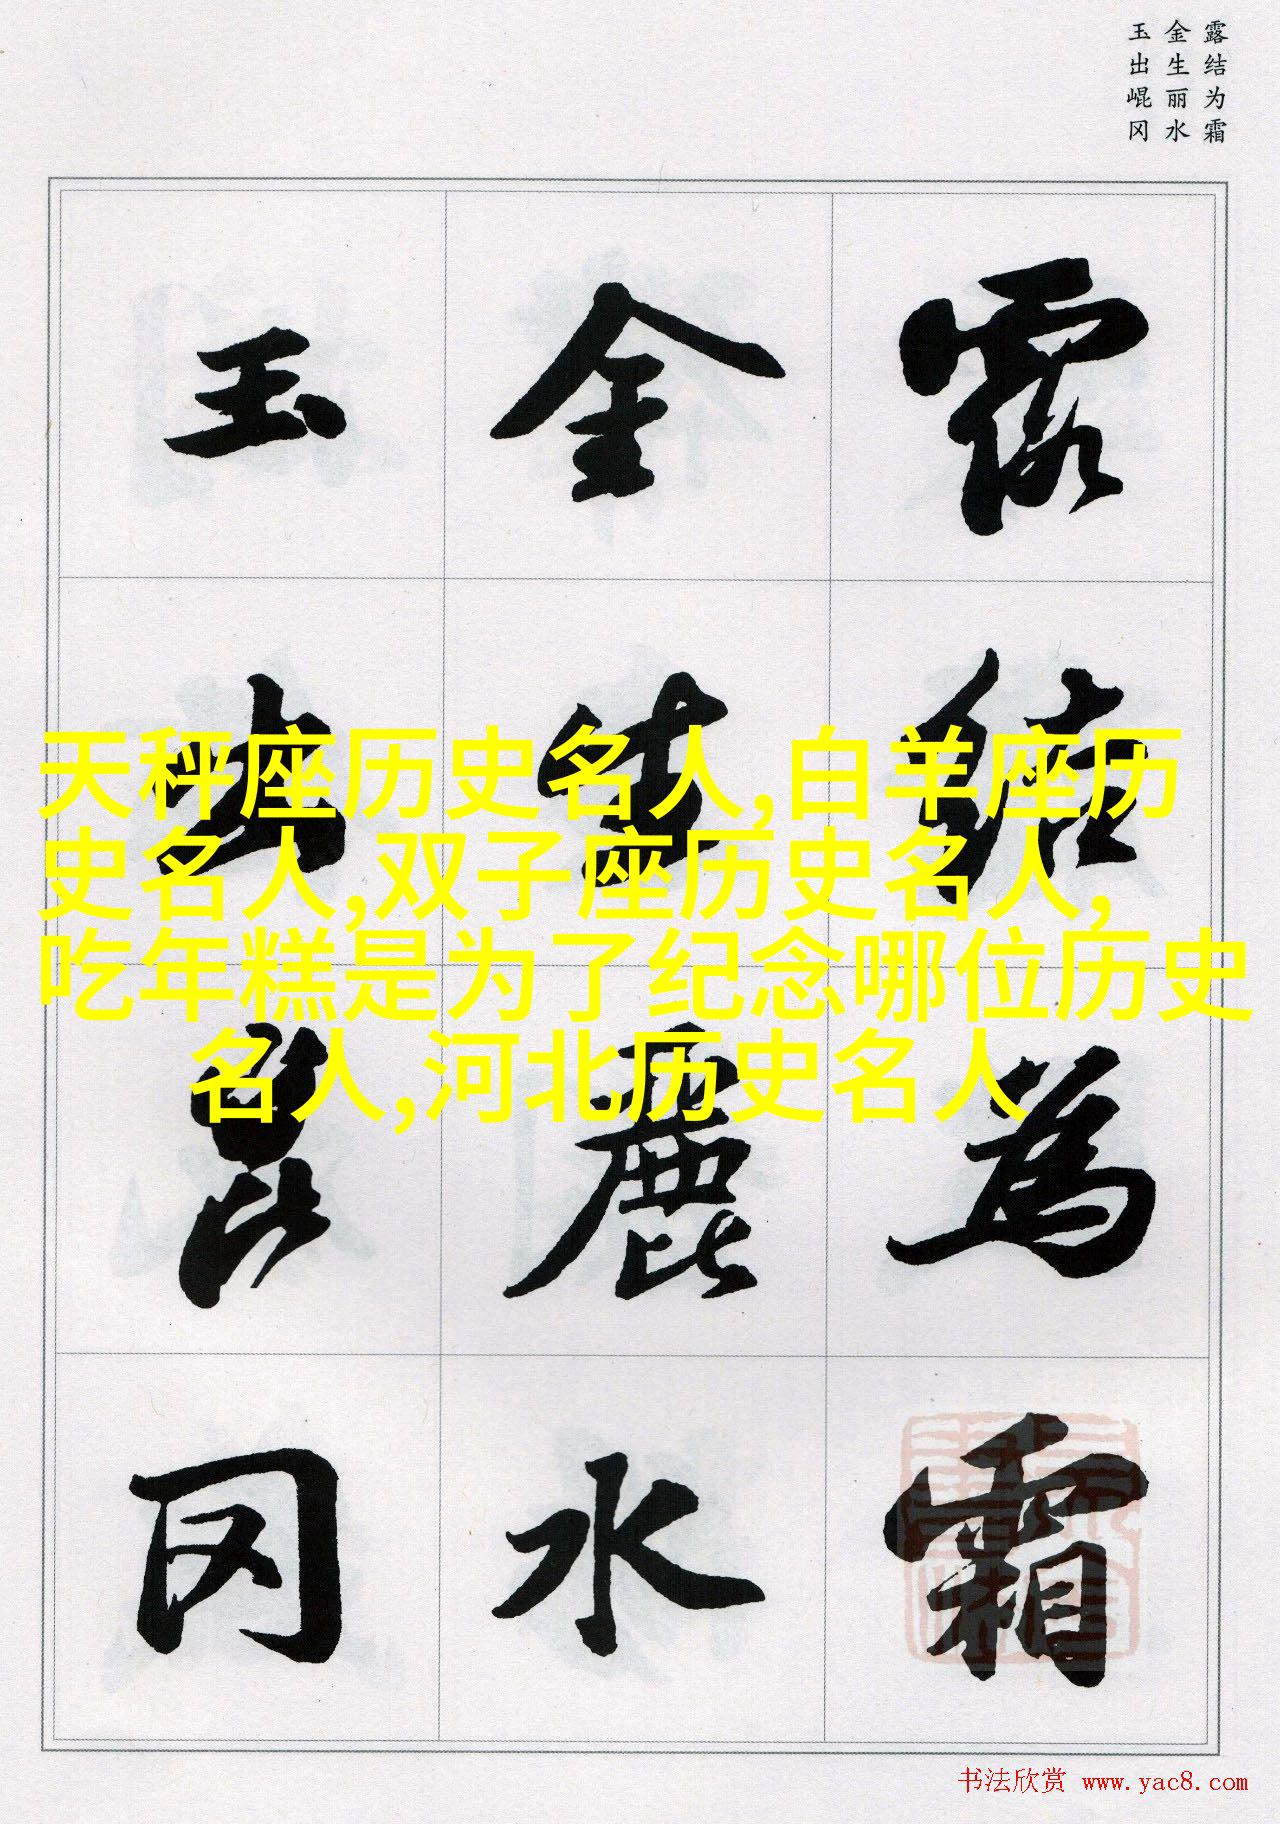 露结为霜
金生丽水
玉出崐冈
露结為霜
金生麗水
玉出崑冈
天秤座历史名人,白羊座历
史名人,双子座历史名人,
吃年糕是为了纪念哪位历史
名人,河北历史名人
书法欣赏 www.yac8.com